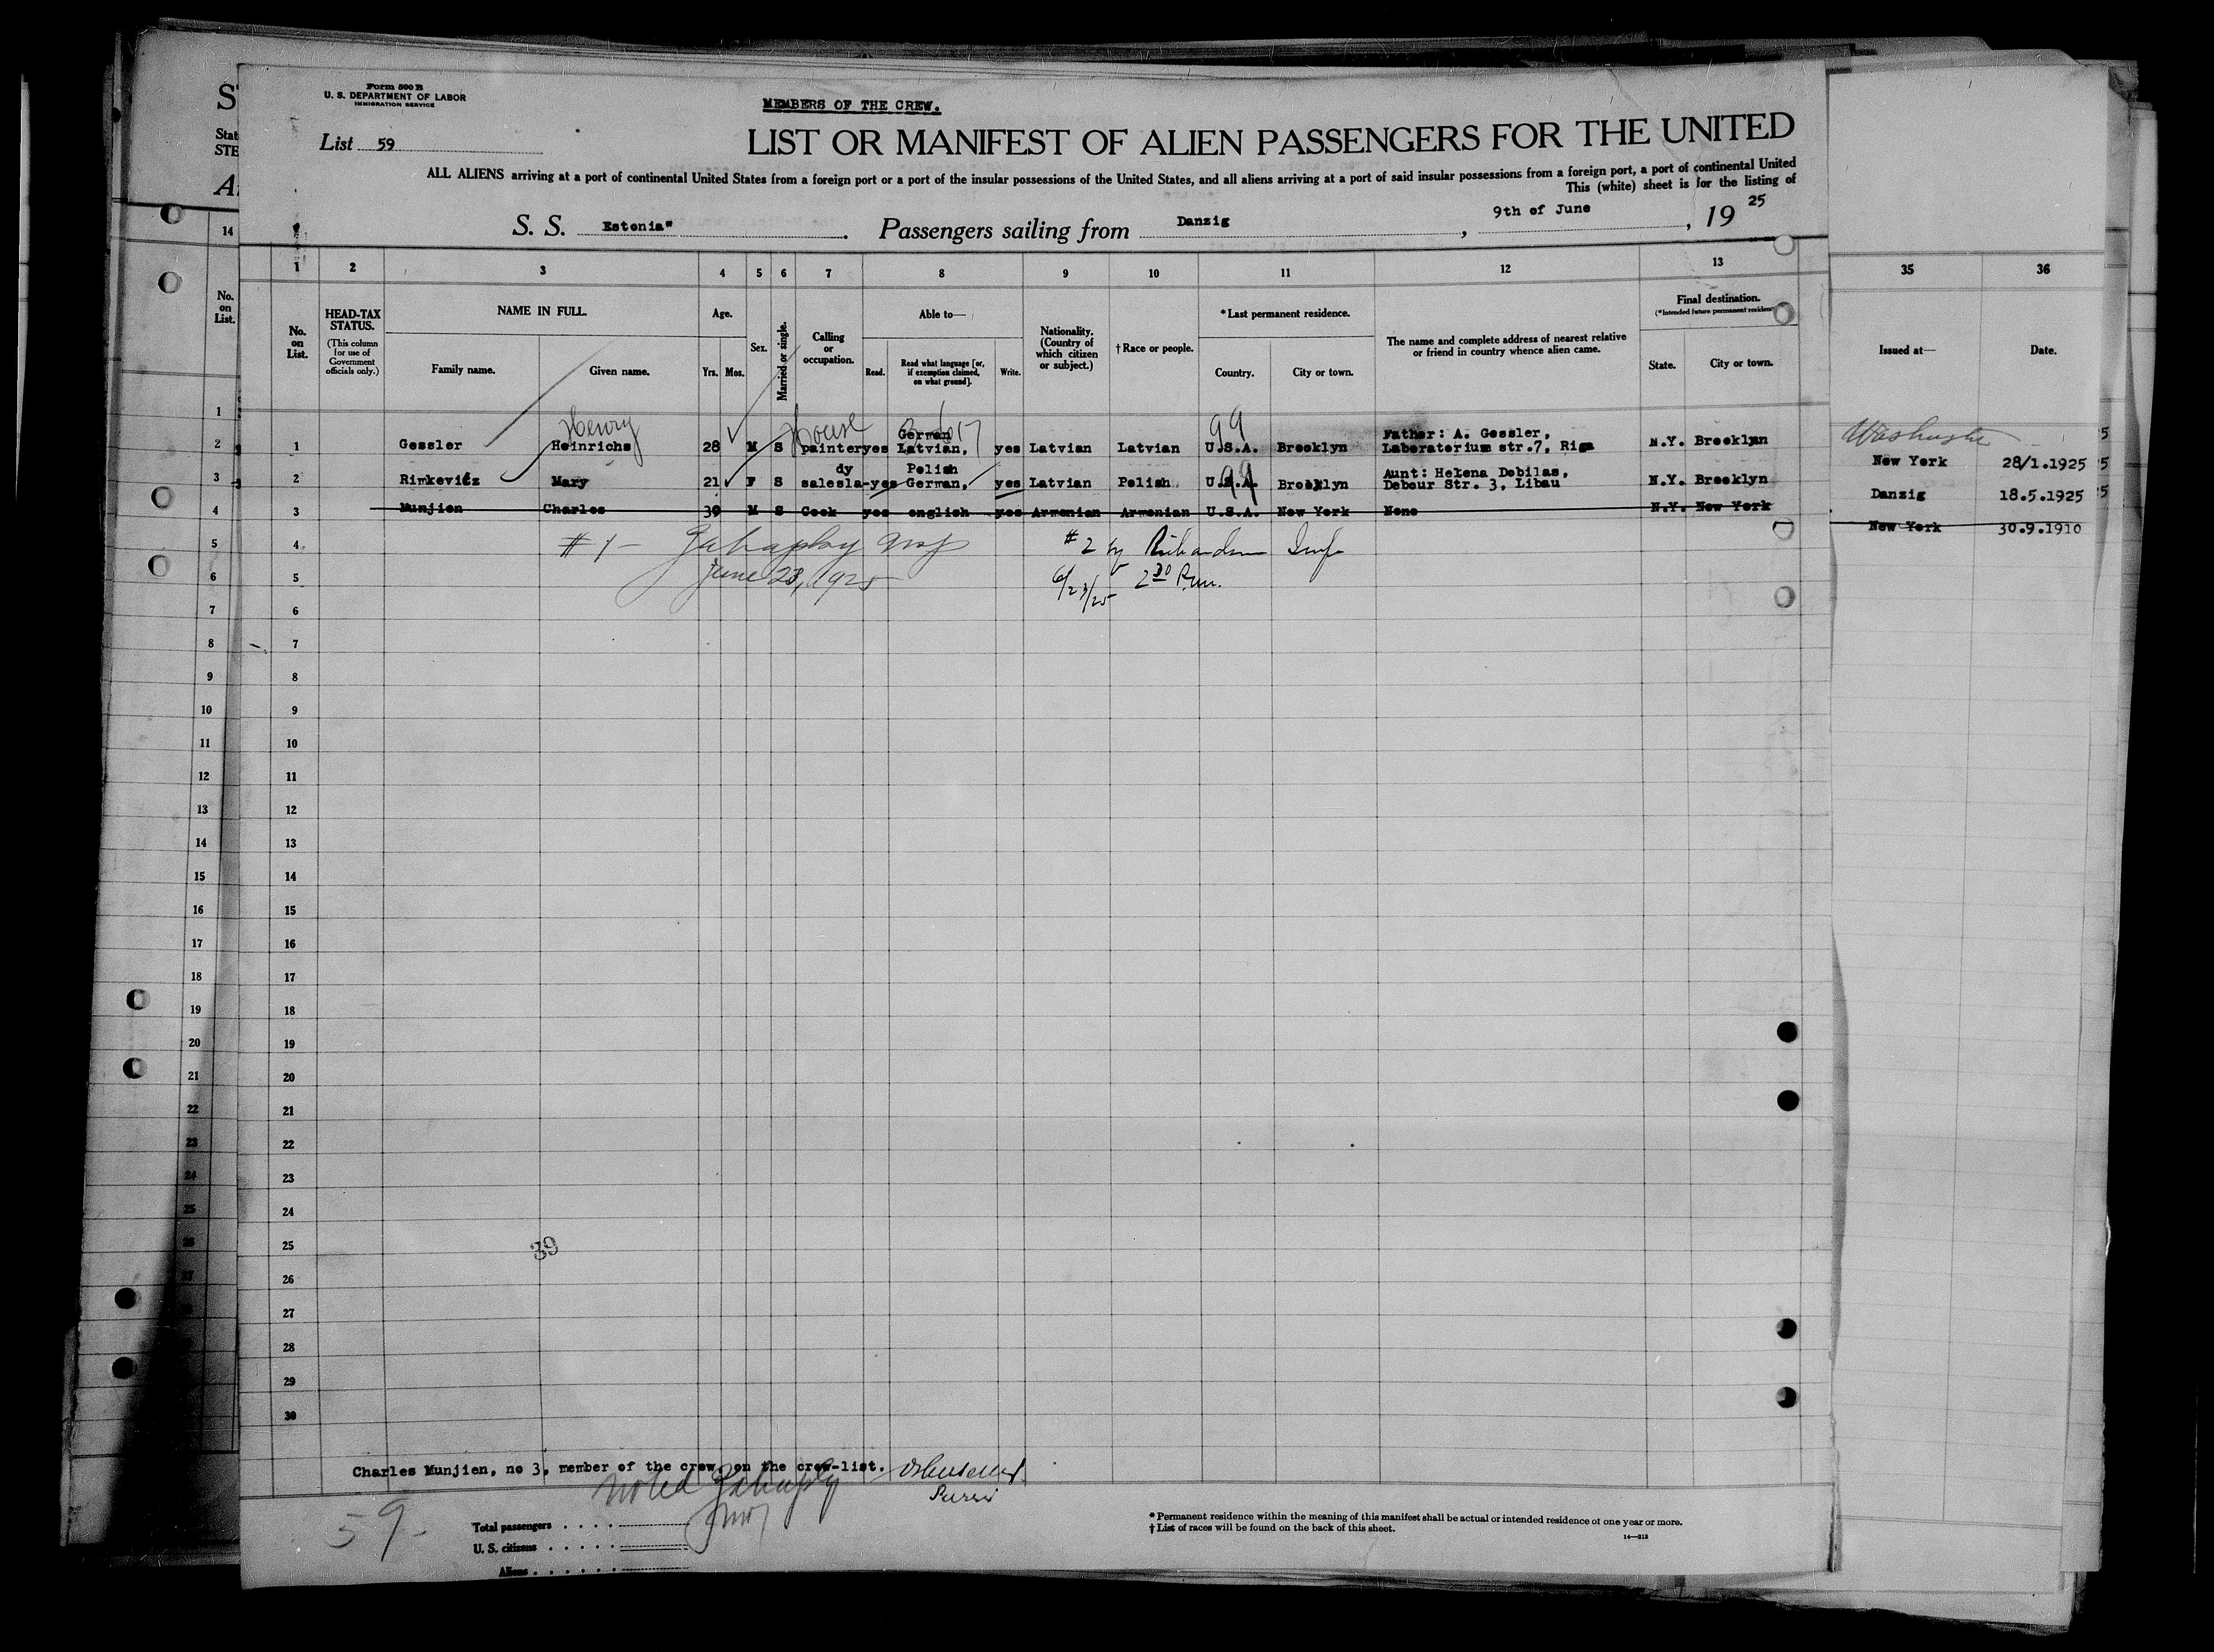 Form 500 B
U. S. DEPARTMENT OF LABOR
IMMIGRATION SERVICE
MEMBERS OF THE CREW.
List 59
LIST OR MANIFEST OF ALIEN PASSENGERS FOR THE UNITED
ALL ALIENS arriving at a port of continental United States from a foreign port or a port of the insular possessions of the United States, and all aliens arriving at a port of said insular possessions from a foreign port, a port of continental United
This (white) sheet is for the listing of
S. S. Estonia" Passengers sailing from Danzig, 9th of June, 19 25
1 2 3 4 5 6 7 8 9 10 11 12 13 35 36
No. on List.
HEAD-TAX STATUS.
(This column for use of Government officials only.)
NAME IN FULL.
Family name. Given name.
Age.
Yrs. Mos.
Sex.
Married or single.
Calling or occupation.
Able to—
Read. Read what language [or, if exemption claimed, on what ground]. Write.
Nationality. (Country of which citizen or subject.)
† Race or people.
* Last permanent residence.
Country. City or town.
The name and complete address of nearest relative or friend in country whence alien came.
Final destination.
(*Intended future permanent residence
State. City or town.
Issued at— Date.
Henry House 99
1 Gessler Heinrichs 28 M S painter yes German Latvian, yes Latvian Latvian U.S.A. Brooklyn Father: A. Gessler, Laboratorium str.7, Riga N.Y. Brooklyn New York 28/1.1925
2 Rimkevicz Mary 21 F S saleslady yes Polish German, yes Latvian Polish U.S.A. Brooklyn Aunt: Helena Debilas, Debour Str. 3, Libau N.Y. Brooklyn Danzig 18.5.1925
99
3 Munjien Charles 39 M S Cook yes english yes Armenian Armenian U.S.A. New York None N.Y. New York New York 30.9.1910
4 #1 - #2 by Richardson Insp
5 June 23, 1925 6/23/25 2 30 P.m.
6
7
8
9
10
11
12
13
14
15
16
17
18
19
20
21
22
23
24
25
39
26
27
28
29
30
Charles Munjien, no 3, member of the crew, on the crew-list.
Noted
59-
Total passengers
U. S. citizens
Aliens
* Permanent residence within the meaning of this manifest shall be actual or intended residence of one year or more.
† List of races will be found on the back of this sheet.
14—212